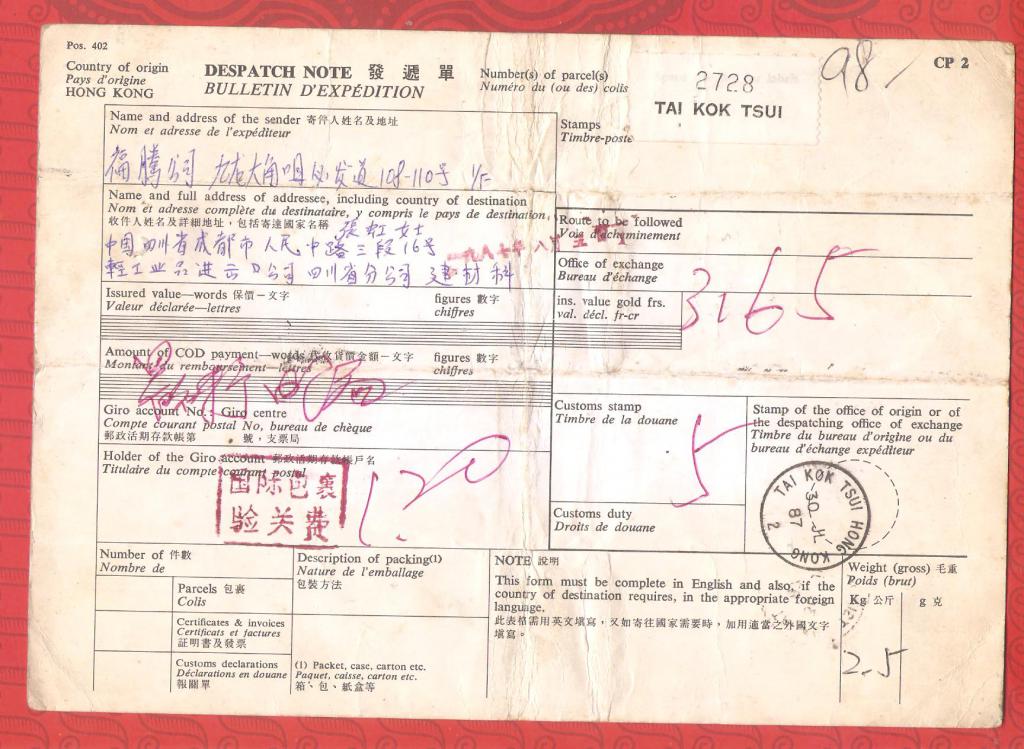 Pos. 402
Country of origin
Pays d'origine
HONG KONG
DESPATCH NOTE 發遞單
BULLETIN D'EXPÉDITION
Number(s) of parcel(s)
Numéro du (ou des) colis
2728
TAI KOK TSUI
98/
CP 2
Name and address of the sender 寄件人姓名及地址
Nom et adresse de l'expéditeur
福腾公司 九龙大角咀必发道108-110号 1/F
Stamps
Timbre-poste
Name and full address of addressee, including country of destination
Nom et adresse complète du destinataire, y compris le pays de destination,
收件人姓名及詳細地址,包括寄達國家名稱
張虹女士
中国四川省成都市人民中路三段16号
輕工业品進出口公司四川省分公司 建材科
一九八七年八月
Route to be followed
Voie d'acheminement
Office of exchange
Bureau d'échange
3165
Issured value—words 保價－文字
Valeur déclarée—lettres
figures 數字
chiffres
ins. value gold frs.
val. décl. fr-cr
Amount of COD payment—words 代收貨價金額－文字
Montant du remboursement—lettres
figures 數字
chiffres
Giro account No.: Giro centre
Compte courant postal No, bureau de chèque
郵政活期存款帳第 號,支票局
Customs stamp
Timbre de la douane
5
Stamp of the office of origin or of
the despatching office of exchange
Timbre du bureau d'origine ou du
bureau d'échange expéditeur
Holder of the Giro account 郵政活期存款帳戶名
Titulaire du compte courant postal
国际包裹
验关费
1.20
TAI KOK TSUI HONG KONG
-30.JL
87
2
Customs duty
Droits de douane
Number of 件數
Nombre de
Parcels 包裹
Colis
Certificates & invoices
Certificats et factures
証明書及發票
Customs declarations
Déclarations en douane
報關單
Description of packing(1)
Nature de l'emballage
包裝方法
(1) Packet, case, carton etc.
Paquet, caisse, carton etc.
箱、包、紙盒等
NOTE 說明
This form must be complete in English and also, if the
country of destination requires, in the appropriate foreign
language.
此表格需用英文填寫,又如寄往國家需要時,加用適當之外國文字
填寫。
Weight (gross) 毛重
Poids (brut)
Kg 公斤
g 克
2.5